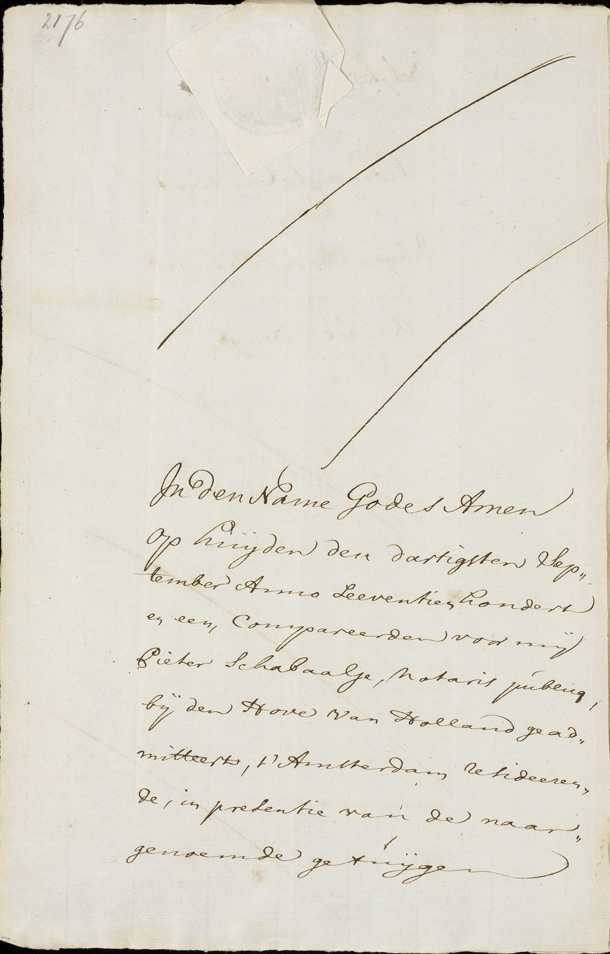 2176
In den Name Godes Amen
op huijden den dartigsten Sep„
tember Anno Seeventien hondert
en een, Compareerden voor mij
Pieter Schabaalje, Notaris publicq,
bij den Hove van Holland gead„
mitteert, t' Amsterdam resideeren„
de, in presentie van de naar„
genoemde getuijgen